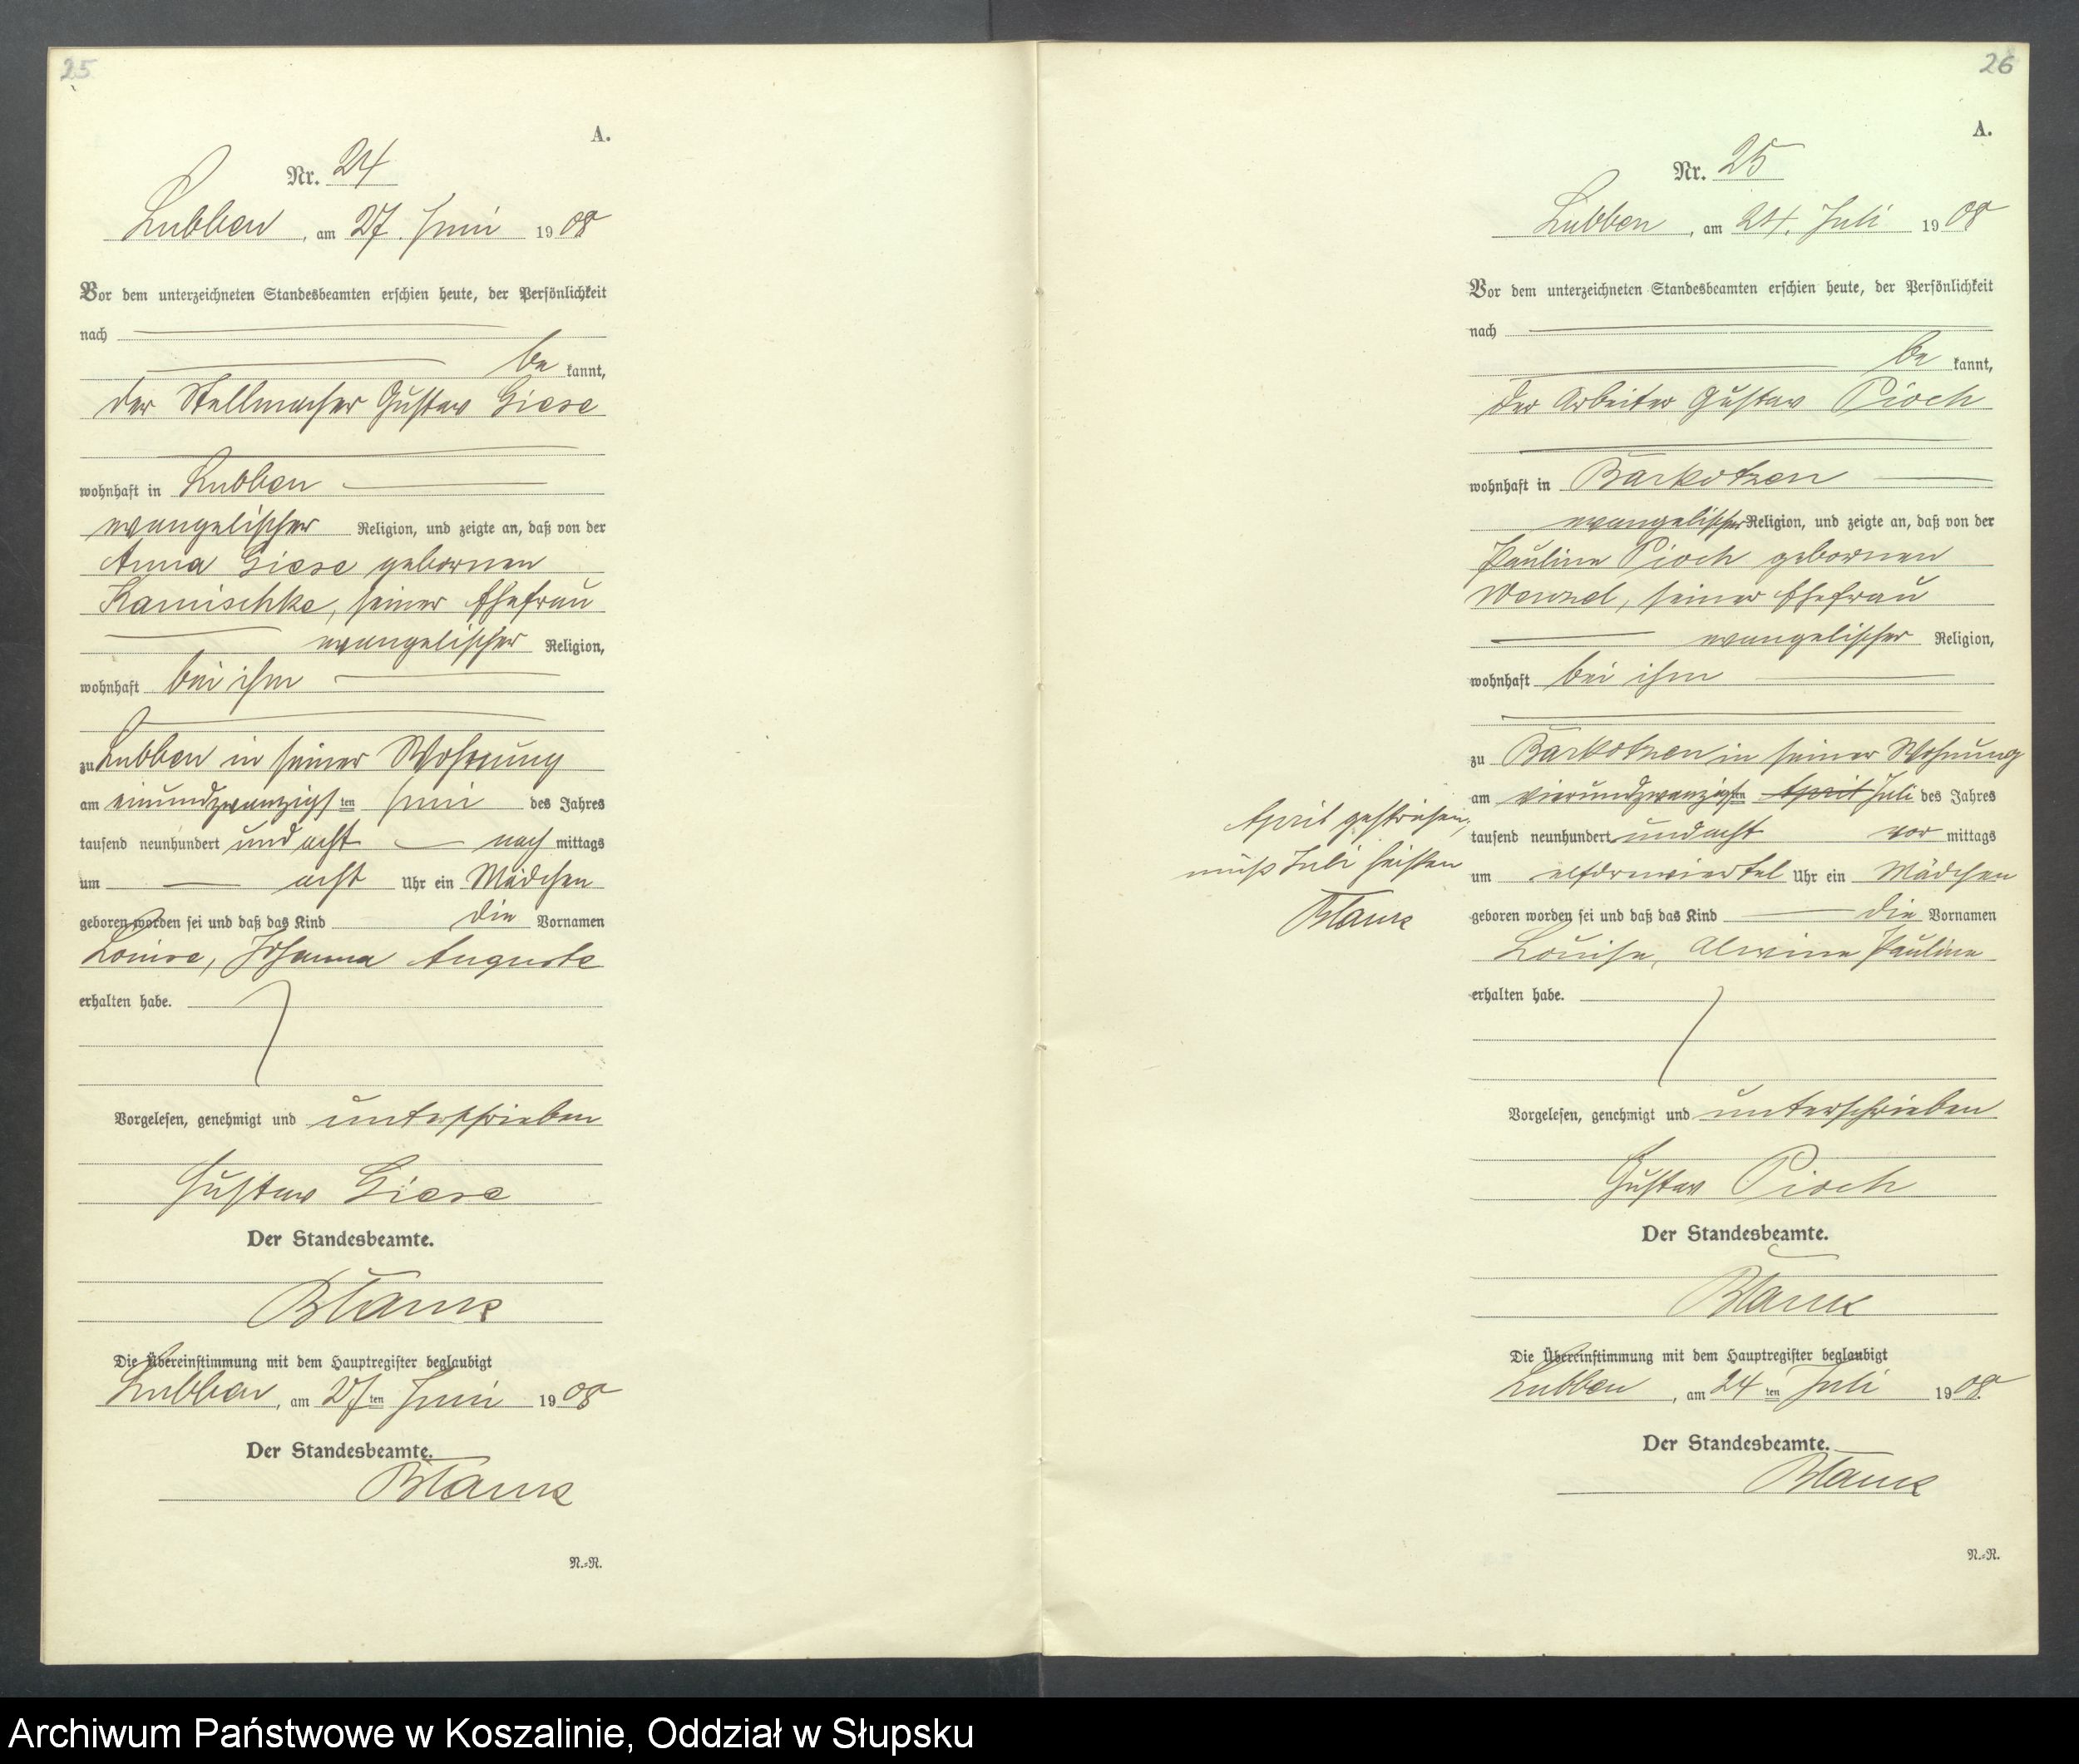 25
A.
Nr. 24
Lubben, am 27. Juni 1908
Vor dem unterzeichneten Standesbeamten erschien heute, der Persönlichkeit
nach
be kannt,
der Stellmacher Gustav Giese
wohnhaft in Lubben
evangelischer Religion, und zeigte an, daß von der
Anna Giese gebornen
Kamischke, seiner Ehefrau
evangelischer Religion,
wohnhaft bei ihm
zu Lubben in seiner Wohnung
am einundzwanzigsten Juni des Jahres
tausend neunhundert und acht nach mittags
um acht Uhr ein Mädchen
geboren worden sei und daß das Kind die Vornamen
Louise, Johanna Auguste
erhalten habe.
Vorgelesen, genehmigt und unterschrieben
Gustav Giese
Der Standesbeamte.
Die Übereinstimmung mit dem Hauptregister beglaubigt
Lubben, am 27ten Juni 1908
Der Standesbeamte.
N.=N.
26
A.
Nr. 25
Lubben, am 24. Juli 1908
Vor dem unterzeichneten Standesbeamten erschien heute, der Persönlichkeit
nach
be kannt,
der Arbeiter Gustav Pioch
wohnhaft in Barkotzen
evangelischer Religion, und zeigte an, daß von der
Pauline Pioch gebornen
Wenzel, seiner Ehefrau
evangelischer Religion,
wohnhaft bei ihm
zu Barkotzen in seiner Wohnung
am vierundzwanzigsten April Juli des Jahres
tausend neunhundert und acht vor mittags
um elfdreiviertel Uhr ein Mädchen
geboren worden sei und daß das Kind die Vornamen
Louise, Alwine Pauline
erhalten habe.
April gestrichen,
muß Juli heißen
Vorgelesen, genehmigt und unterschrieben
Gustav Pioch
Der Standesbeamte.
Die Übereinstimmung mit dem Hauptregister beglaubigt
Lubben, am 24ten Juli 1908.
Der Standesbeamte.
N.=N.
Archiwum Państwowe w Koszalinie, Oddział w Słupsku